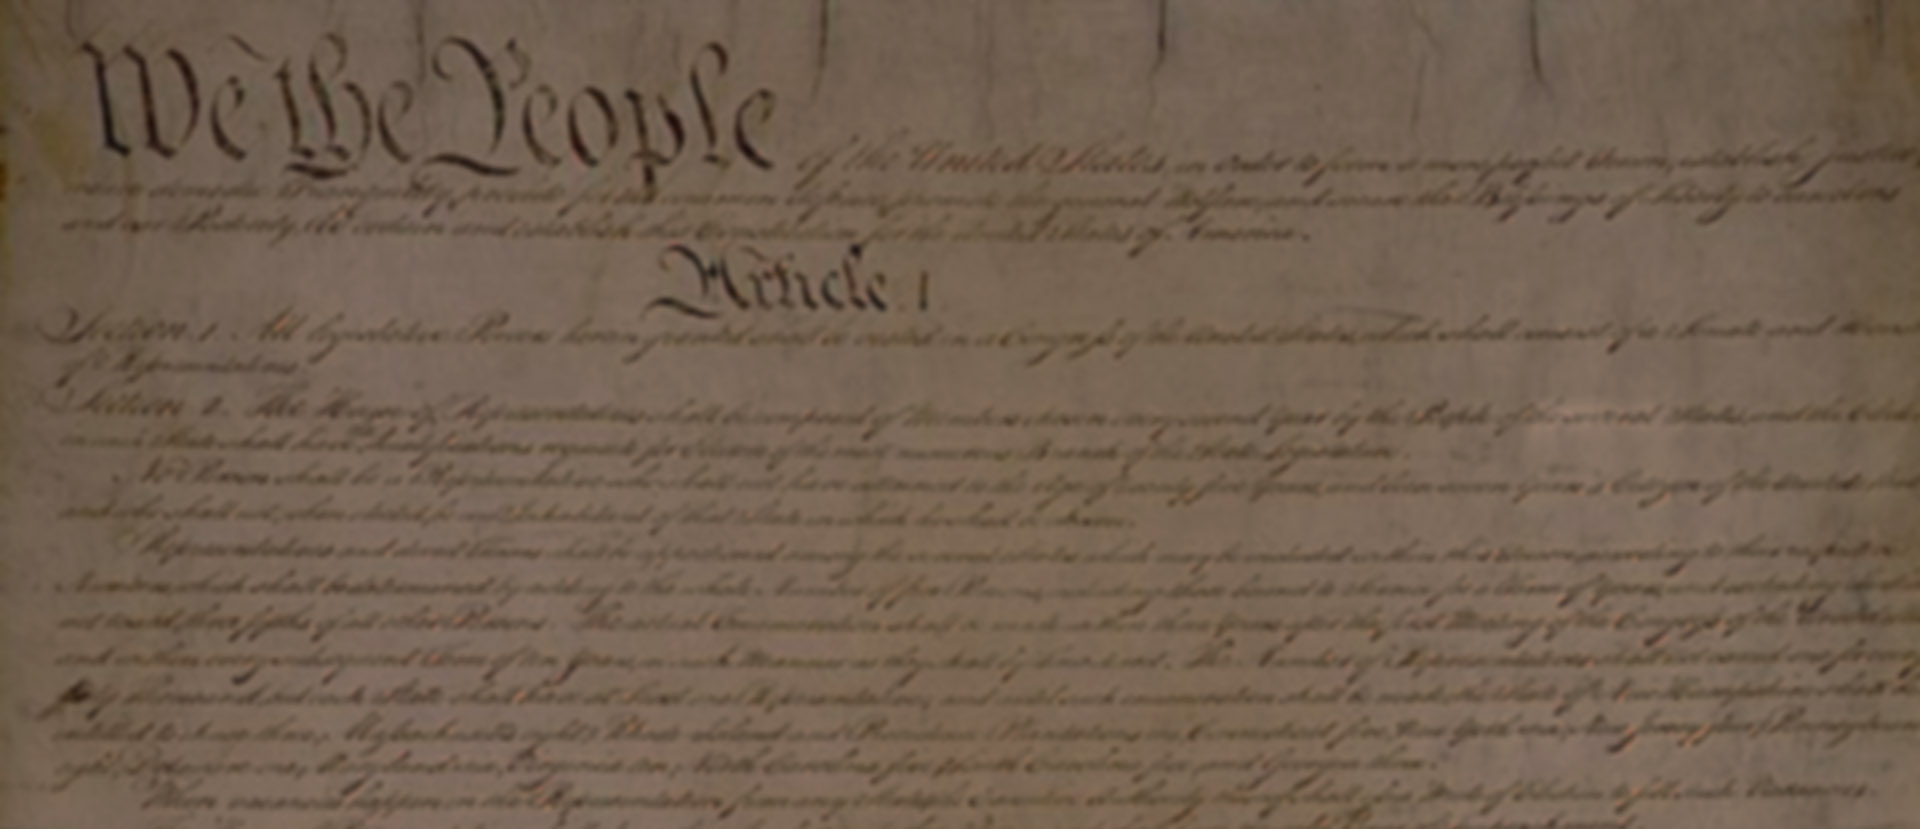 We the People of the United States, in Order to form a more perfect Union, establish Justice
insure domestic Tranquility, provide for the common defence, promote the general Welfare, and secure the Blessings of Liberty to ourselves
and our Posterity, do ordain and establish this Constitution for the United States of America.
Article. I.
Section. 1. All legislative Powers herein granted shall be vested in a Congress of the United States, which shall consist of a Senate and House
of Representatives.
Section. 2. The House of Representatives shall be composed of Members chosen every second Year by the People of the several States, and the
in each State shall have Qualifications requisite for Electors of the most numerous Branch of the State Legislature.
No Person shall be a Representative who shall not have attained to the Age of twenty five Years, and been seven Years a Citizen of the United
and who shall not, when elected, be an Inhabitant of that State in which he shall be chosen.
Representatives and direct Taxes shall be apportioned among the several States which may be included within this Union, according to their respective
Numbers, which shall be determined by adding to the whole Number of free Persons, including those bound to Service for a Term of Years, and excluding
not taxed, three fifths of all other Persons. The actual Enumeration shall be made within three Years after the first Meeting of the Congress of the United
and within every subsequent Term of ten Years, in such Manner as they shall by Law direct. The Number of Representatives shall not exceed one for every
thirty Thousand, but each State shall have at Least one Representative; and until such enumeration shall be made, the State of New Hampshire shall be
entitled to chuse three, Massachusetts eight, Rhode Island and Providence Plantations one, Connecticut five, New York six, New Jersey four, Pennsylvania
eight, Delaware one, Maryland six, Virginia ten, North Carolina five, South Carolina five, and Georgia three.
When vacancies happen in the Representation from any State, the Executive Authority thereof shall issue Writs of Election to fill such Vacancies.